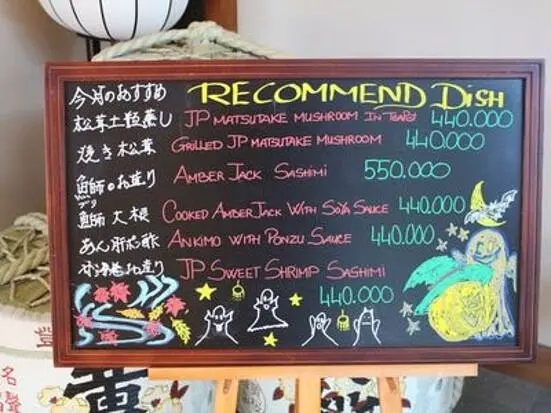 今月のおすすめ RECOMMEND DISH
松茸土瓶蒸し JP MATSUTAKE MUSHROOM IN TEAPOT 440.000
焼き松茸 GRILLED JP MATSUTAKE MUSHROOM 440.000
お造り AMBER JACK SASHIMI 550.000
大根 COOKED AMBER JACK WITH SOYA SAUCE 440.000
あん肝ポン酢 ANKIMO WITH PONZU SAUCE 440.000
お造り JP SWEET SHRIMP SASHIMI
440.000